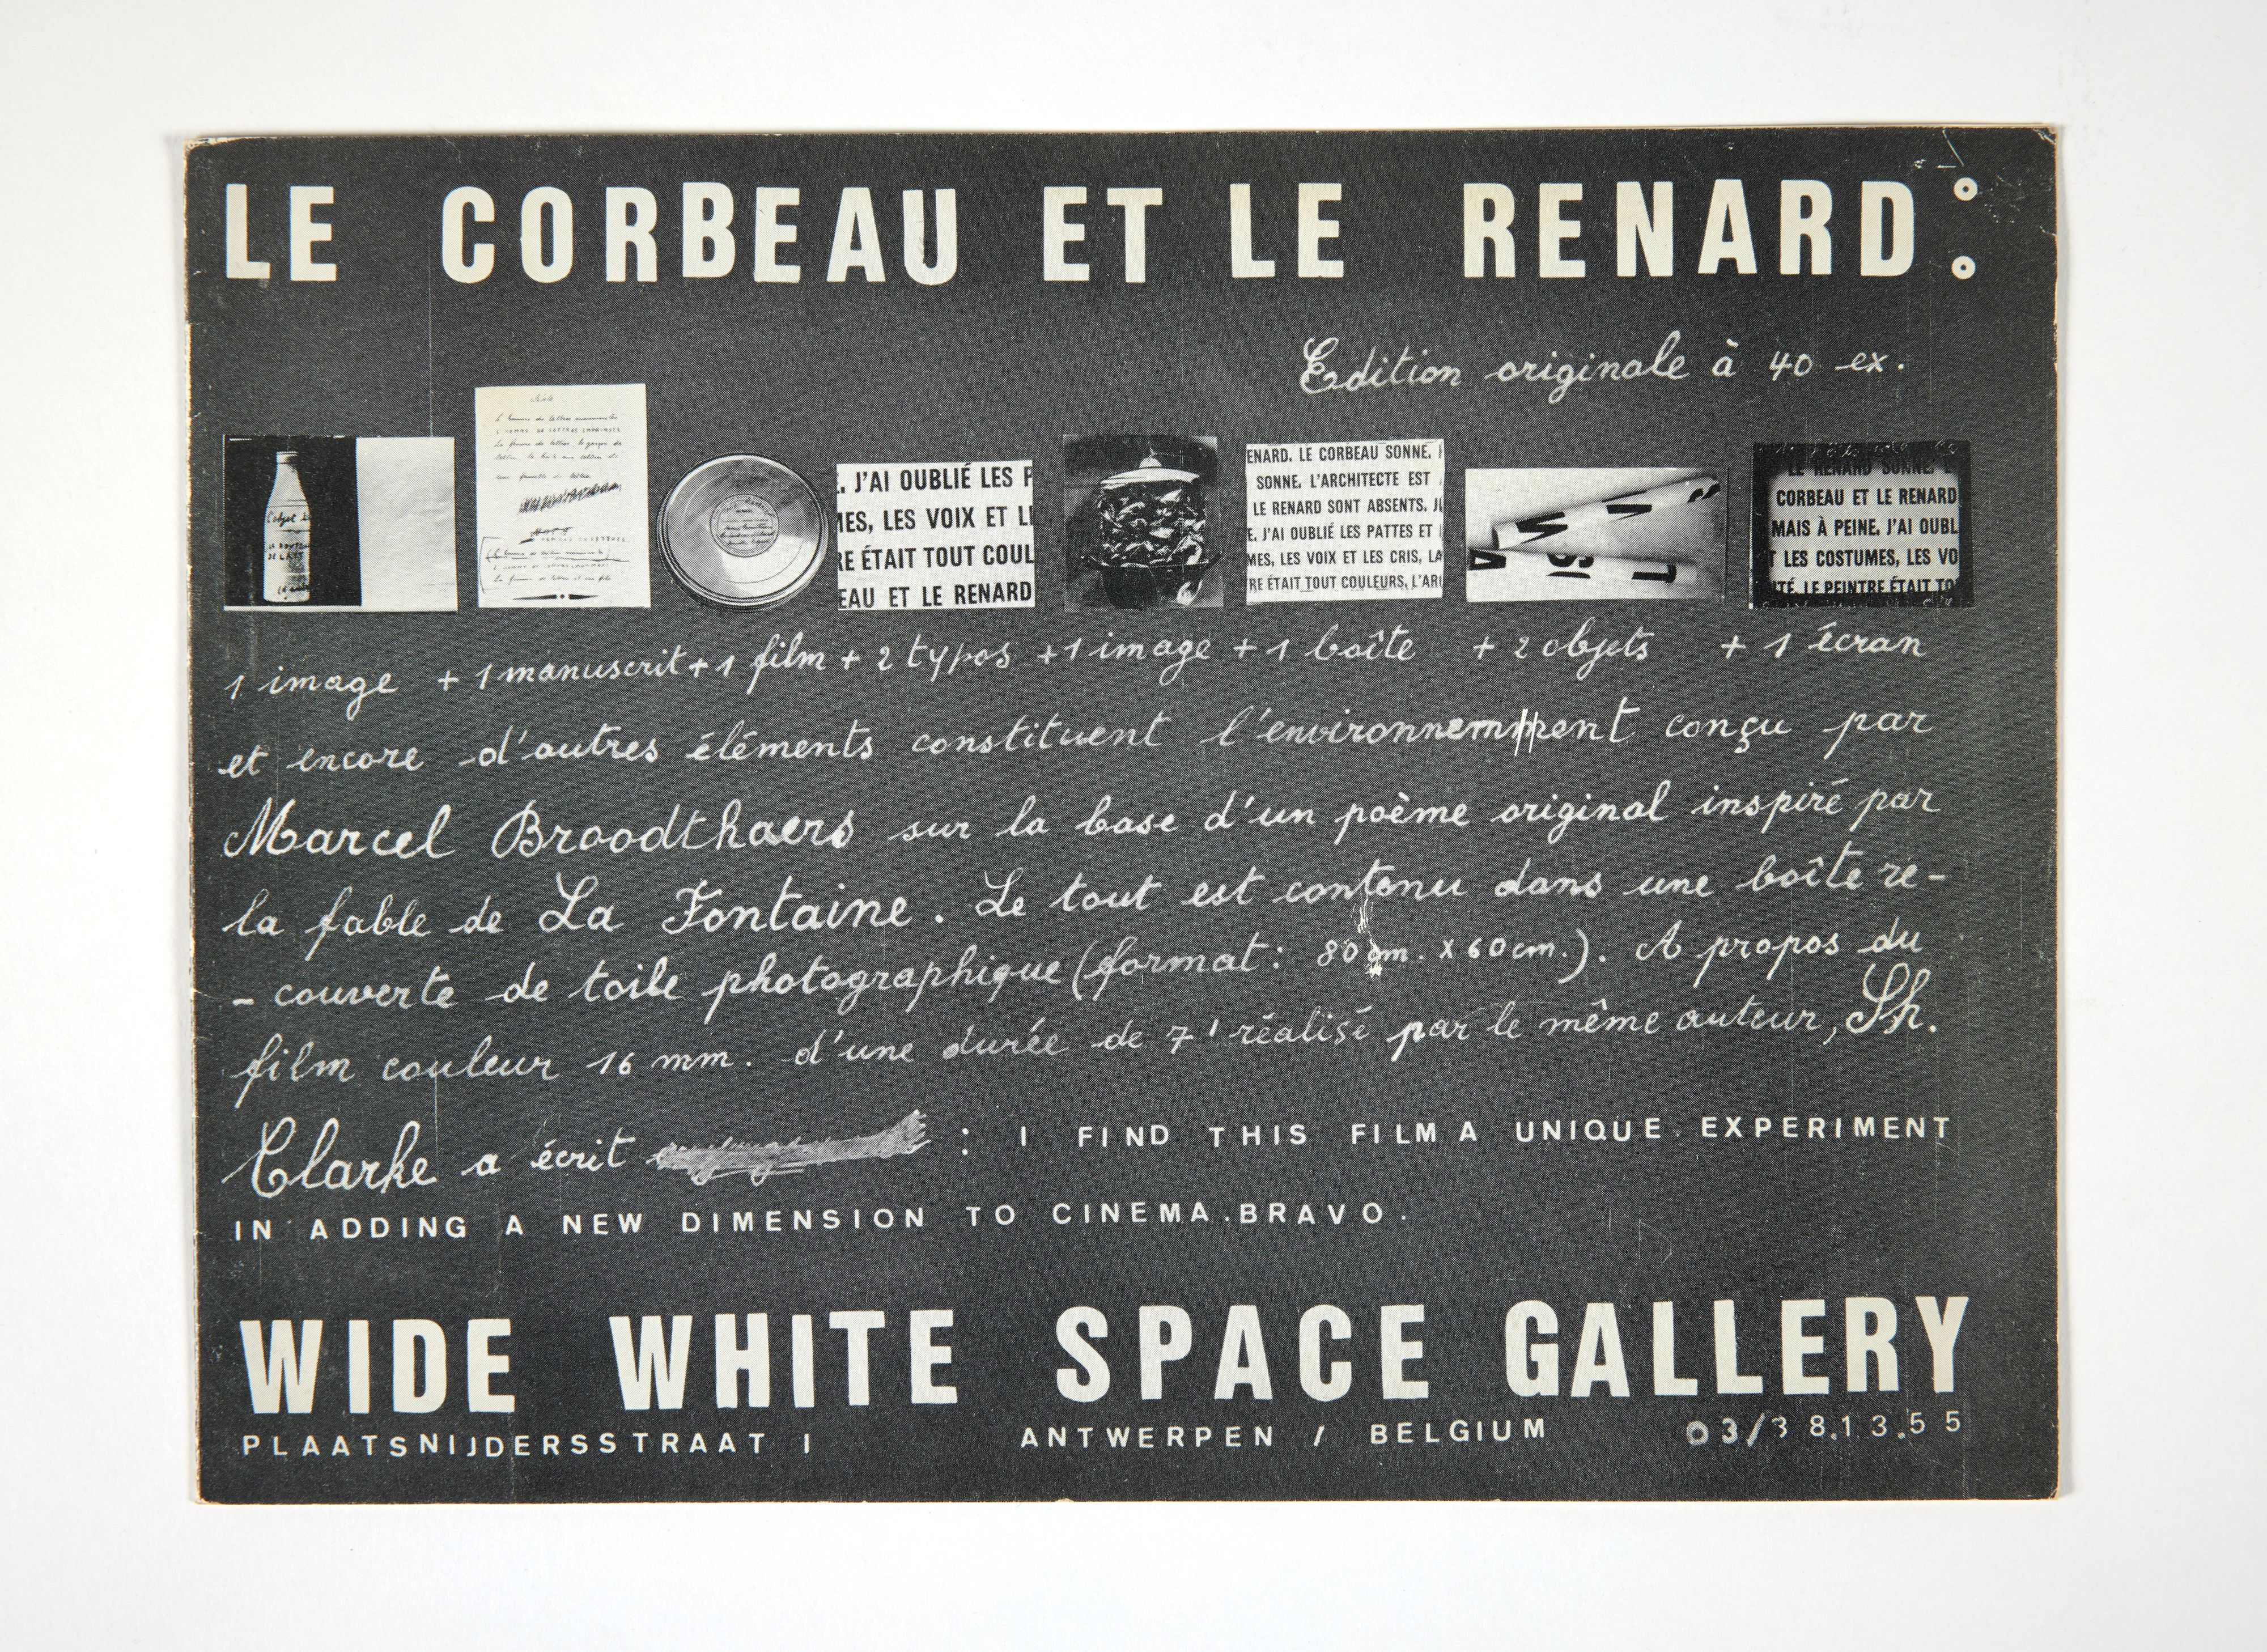 LE CORBEAU ET LE RENARD:
Edition originale à 40 ex.
L'objet
LA BOUTE
DE LAIT
. J'AI OUBLIÉ LES P
MES, LES VOIX ET LE
RE ÉTAIT TOUT COUL
EAU ET LE RENARD
ENARD. LE CORBEAU SONNE.
SONNE. L'ARCHITECTE EST
LE RENARD SONT ABSENTS. JE
E. J'AI OUBLIÉ LES PATTES ET
MES, LES VOIX ET LES CRIS, LA
RE ÉTAIT TOUT COULEURS, L'ARC
LE RENARD SONNE. L
CORBEAU ET LE RENARD
MAIS À PEINE. J'AI OUBL
T LES COSTUMES, LES VO
ITÉ. LE PEINTRE ÉTAIT TO
1 image + 1 manuscrit + 1 film + 2 typos + 1 image + 1 boîte + 2 objets + 1 écran
et encore d'autres éléments constituent l'environnement conçu par
Marcel Broodthaers sur la base d'un poème original inspiré par
la fable de La Fontaine. Le tout est contenu dans une boîte re-
-couverte de toile photographique (format: 80 cm. x 60 cm.). A propos du
film couleur 16 mm. d'une durée de 7' réalisé par le même auteur, Sh.
Clarke a écrit : I FIND THIS FILM A UNIQUE EXPERIMENT
IN ADDING A NEW DIMENSION TO CINEMA. BRAVO.
WIDE WHITE SPACE GALLERY
PLAATSNIJDERSSTRAAT I ANTWERPEN / BELGIUM 03/38.13.55